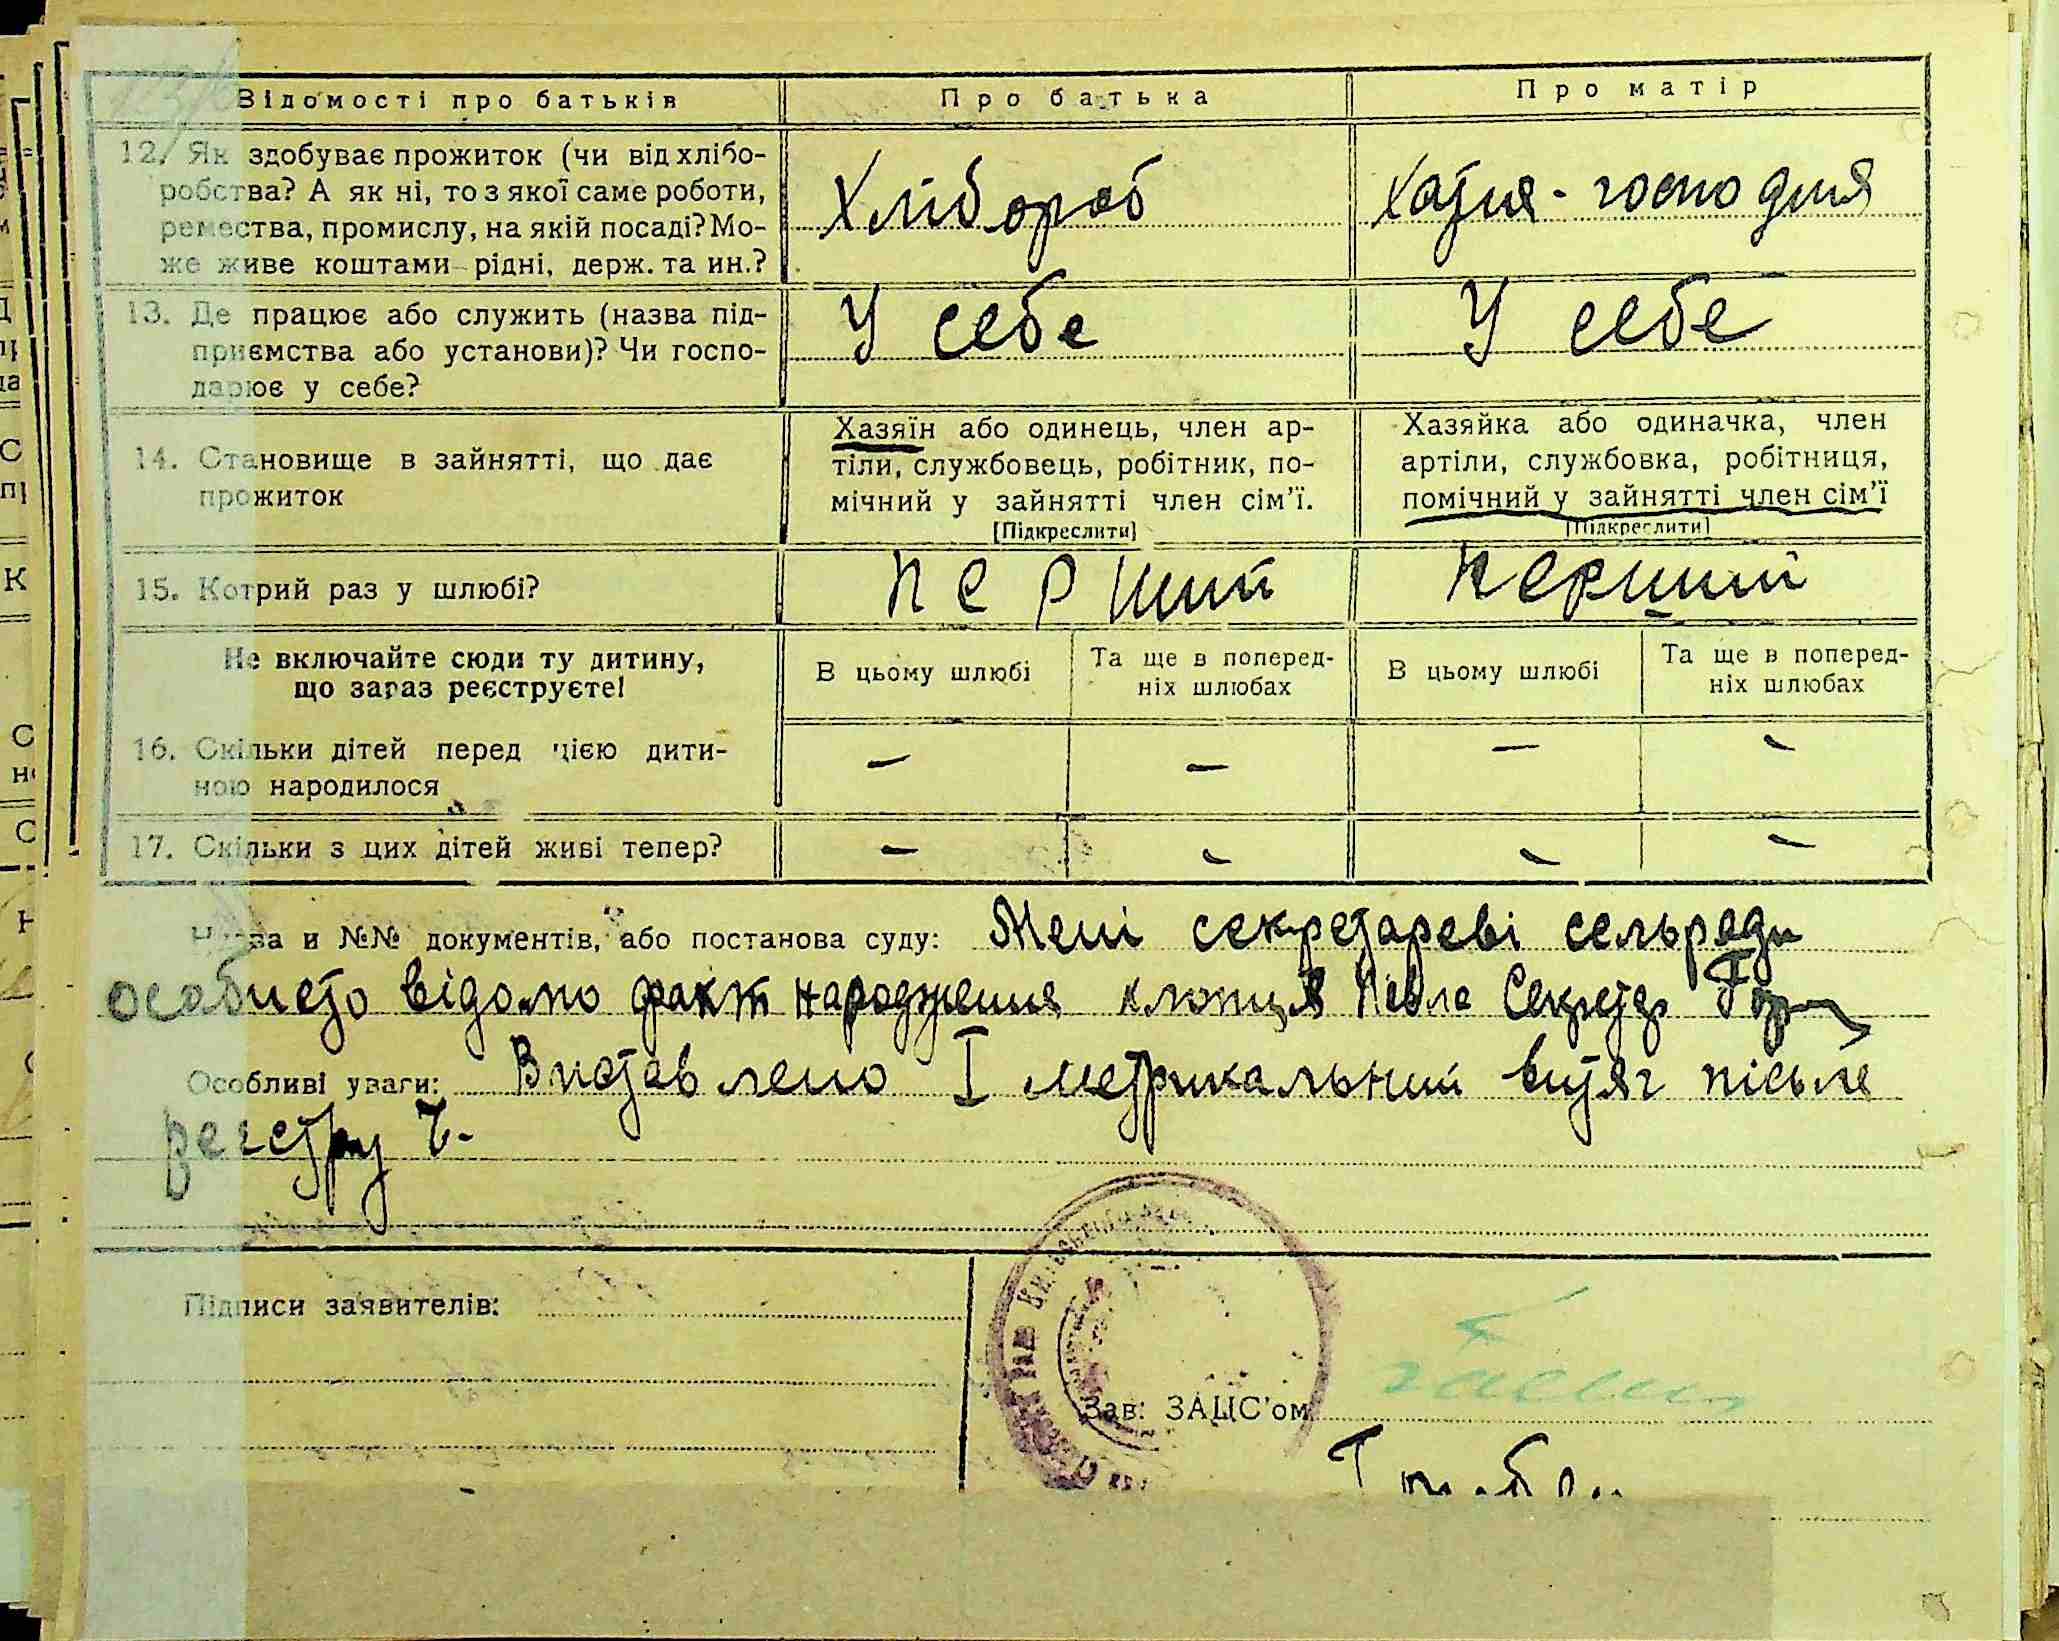 Відомості про батьків
Про батька
Про матір
12. Як здобуває прожиток (чи від хлібо-
робства? А як ні, то з якої саме роботи,
ремества, промислу, на якій посаді? Мо-
же живе коштами рідні, держ. та ин.?
Хлібороб
Хатня-господня
13. Де працює або служить (назва під-
приємства або установи)? Чи госпо-
дарює у себе?
У себе
У себе
14. Становище в зайнятті, що дає
прожиток
Хазяїн або одинець, член ар-
тіли, службовець, робітник, по-
мічний у зайнятті член сім'ї.
[Підкреслити]
Хазяйка або одиначка, член
артіли, службовка, робітниця,
помічний у зайнятті член сім'ї
[Підкреслити]
15. Котрий раз у шлюбі?
перший
перший
Не включайте сюди ту дитину,
що зараз реєструєте!
В цьому шлюбі
Та ще в поперед-
ніх шлюбах
В цьому шлюбі
Та ще в поперед-
ніх шлюбах
16. Скільки дітей перед цією дити-
ною народилося
— — — —
17. Скільки з цих дітей живі тепер?
— — — —
Назва и №№ документів, або постанова суду: Мені секретареві сельради
особисто відомо факт народження хлопця Павла Секретар
Особливі уваги: Виставлено I метрикальний витяг після
регстру
Підписи заявителів:
Зав. ЗАЦС'ом